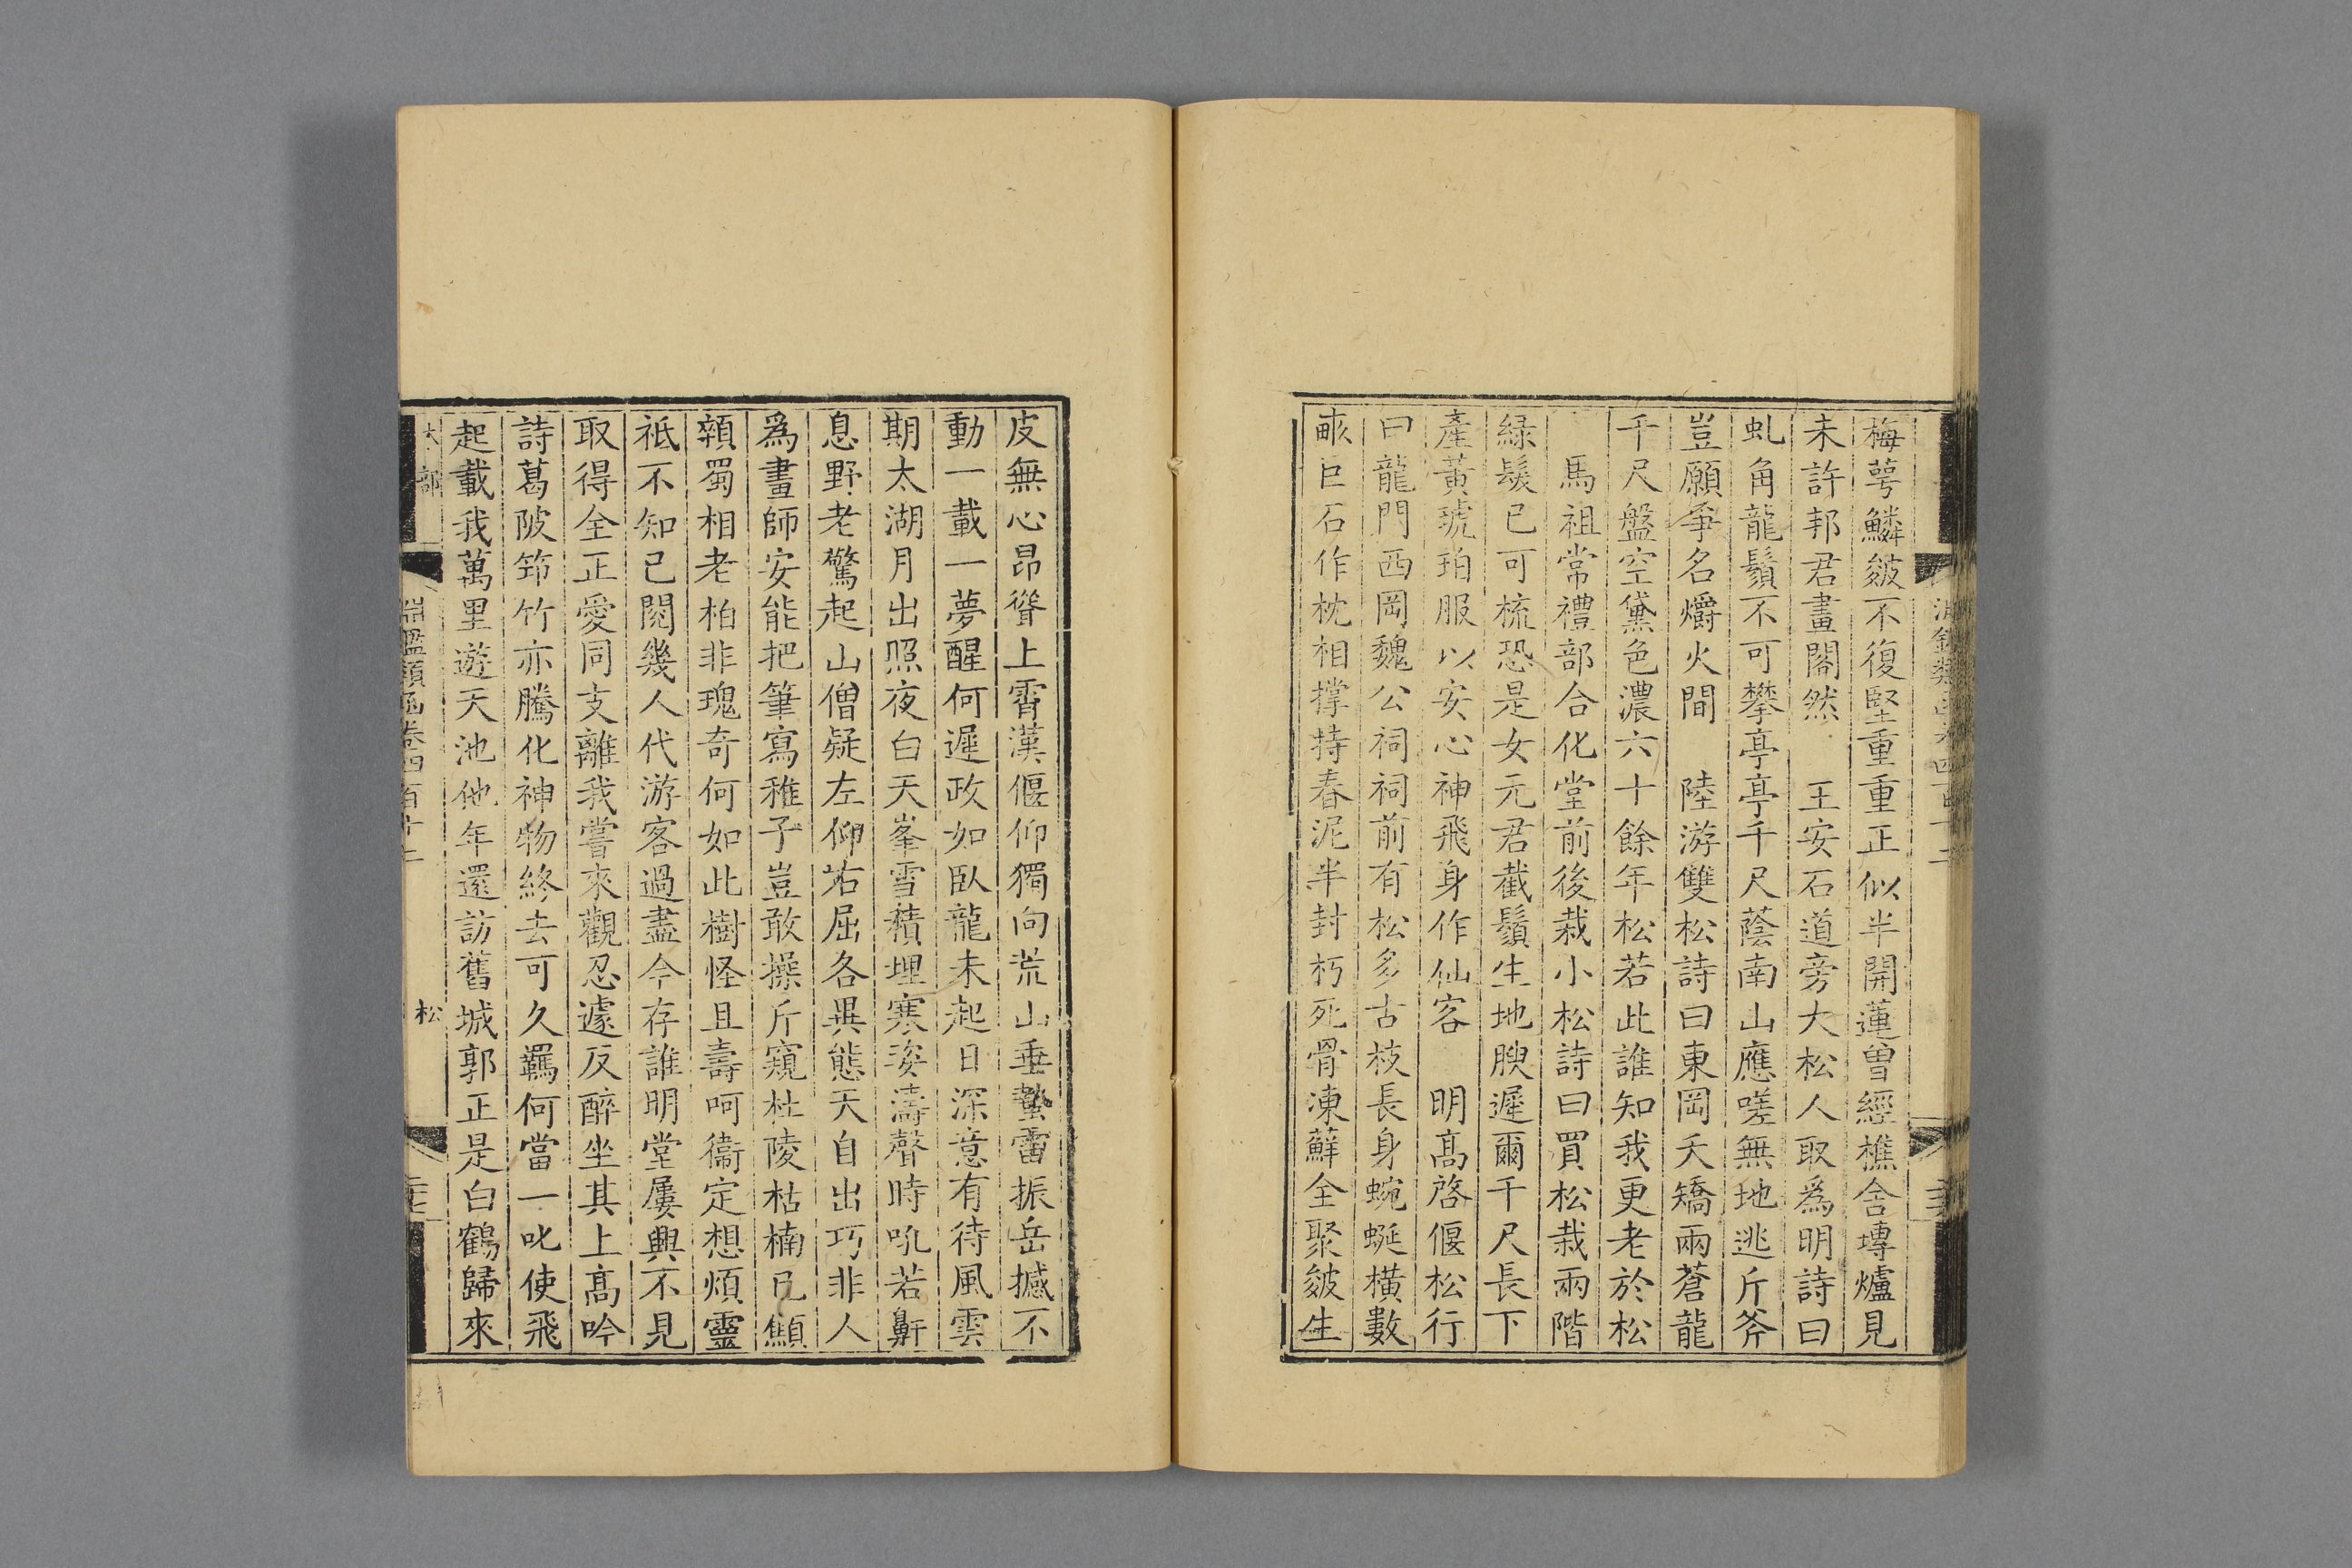 梅萼鱗皴不復堅重重正似半開蓮曾經樵舍塼爐見
未許邦君畫閣然　王安石道旁大松人取爲明詩曰
虬角龍鬚不可攀亭亭千尺蔭南山應嗟無地逃斤斧
豈願爭名爝火間　陸游雙松詩曰東岡夭矯兩蒼龍
千尺盤空黛色濃六十餘年松若此誰知我更老於松
馬祖常禮部合化堂前後栽小松詩曰買松栽兩階
綠髮已可梳恐是女元君截鬚生地腴遲爾千尺長下
產黃琥珀服以安心神飛身作仙客　明高啓偃松行
曰龍門西岡魏公祠祠前有松多古枝長身蜿蜒橫數
畝巨石作枕相撑持春泥半封朽死骨凍蘚全聚皴生
皮無心昂聳上霄漢偃仰獨向荒山垂蟄雷振岳撼不
動一載一夢醒何遲政如臥龍未起日深意有待風雲
期太湖月出照夜白天峯雪積埋寒姿濤聲時吼若鼾
息野老驚起山僧疑左仰右屈各異態天自出巧非人
爲畫師安能把筆寫稚子豈敢操斤窺杜陵枯楠已顦
顇蜀相老柏非瑰奇何如此樹怪且壽呵衞定想煩靈
祇不知已閱幾人代游客過盡今存誰明堂屢興不見
取得全正愛同支離我嘗來觀忍遽反醉坐其上高吟
詩葛陂筇竹亦騰化神物終去可久羈何當一叱使飛
起載我萬里遊天池他年還訪舊城郭正是白鶴歸來
淵鑑類函卷四百十二
松